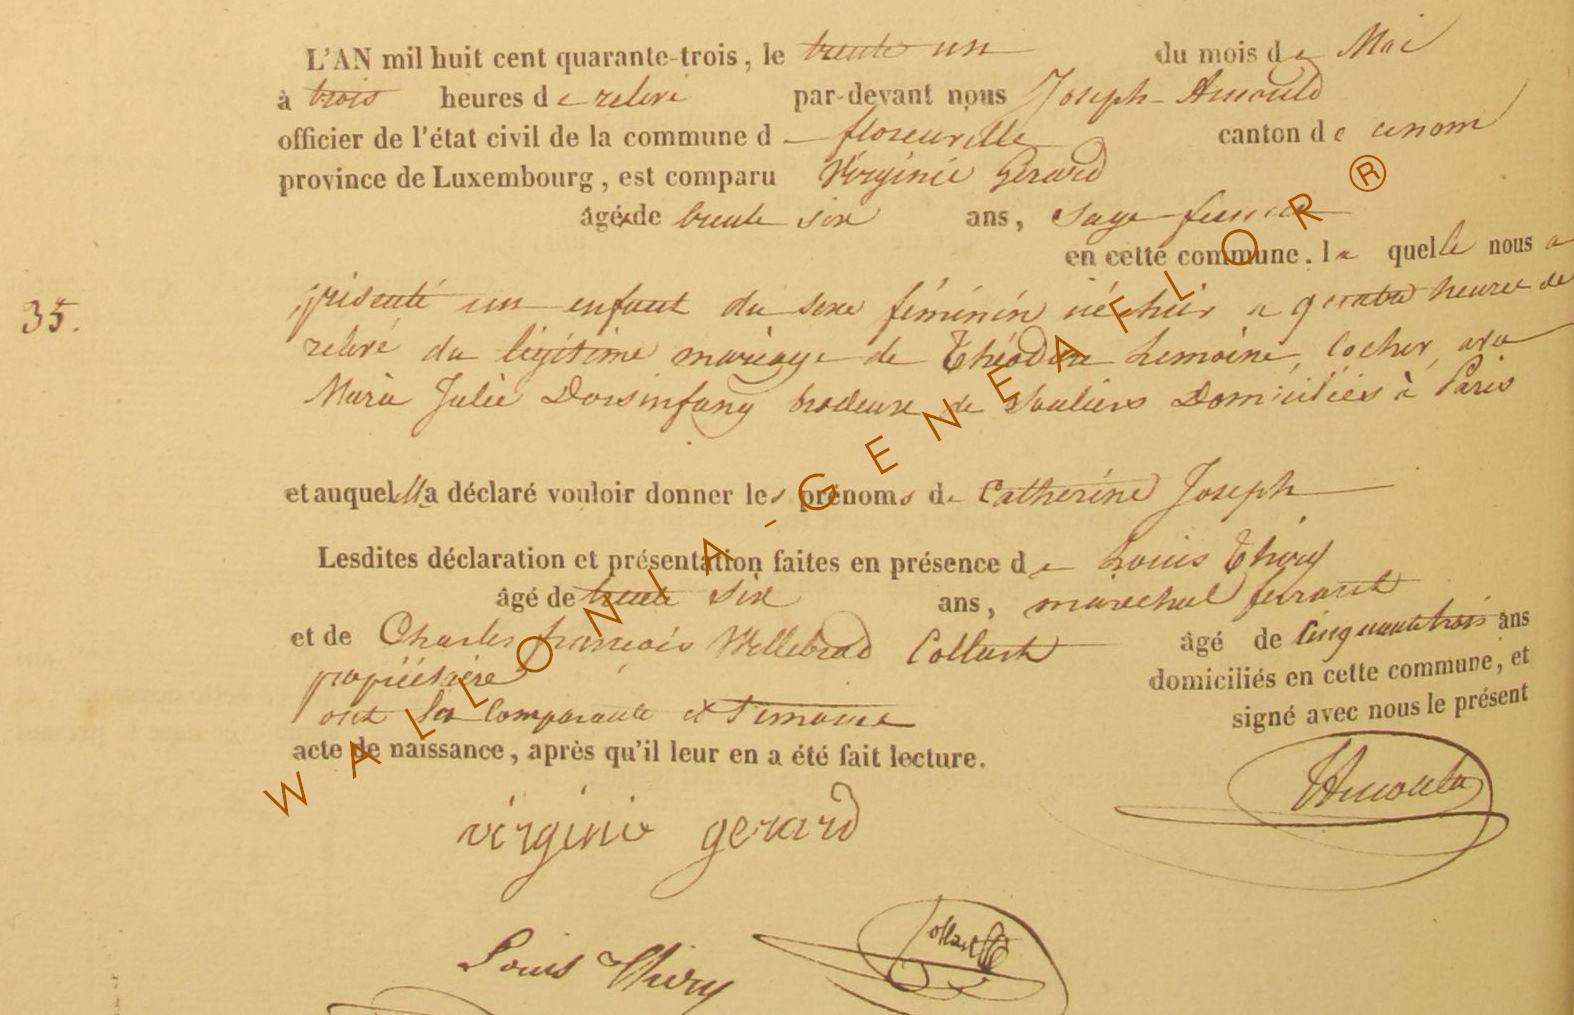 L'AN mil huit cent quarante-trois, le trente un du mois de Mai
à trois heures de relevé par-devant nous Joseph Arnould
officier de l'état civil de la commune d florenville canton de
province de Luxembourg, est comparu Virginie Gérard
âgée de trente six ans, sage femme
en cette commune. la quelle nous a
35. présenté un enfant du sexe féminin né hier a quatre heures de
relevé du légitime mariage de Théodore Lemoine, cocher, avec
Marie Julie brodeuse de souliers Domiciliés à Paris
et auquel a déclaré vouloir donner les prénoms de Catherine Joseph
Lesdites déclaration et présentation faites en présence de Louis Thiry
âgé de trente six ans, marechal ferrant
et de Charles françois Willebrod Collart âgé de cinquante trois ans
propriétaire domiciliés en cette commune, et
ont la Comparante et témoins signé avec nous le présent
acte de naissance, après qu'il leur en a été fait lecture.
JArnould
virginie gerard
Collart
Louis Thiry
WALLONIA-GENEAFLOR®